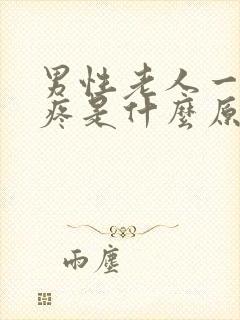 男性老人一
疼是什麼原
雨塵